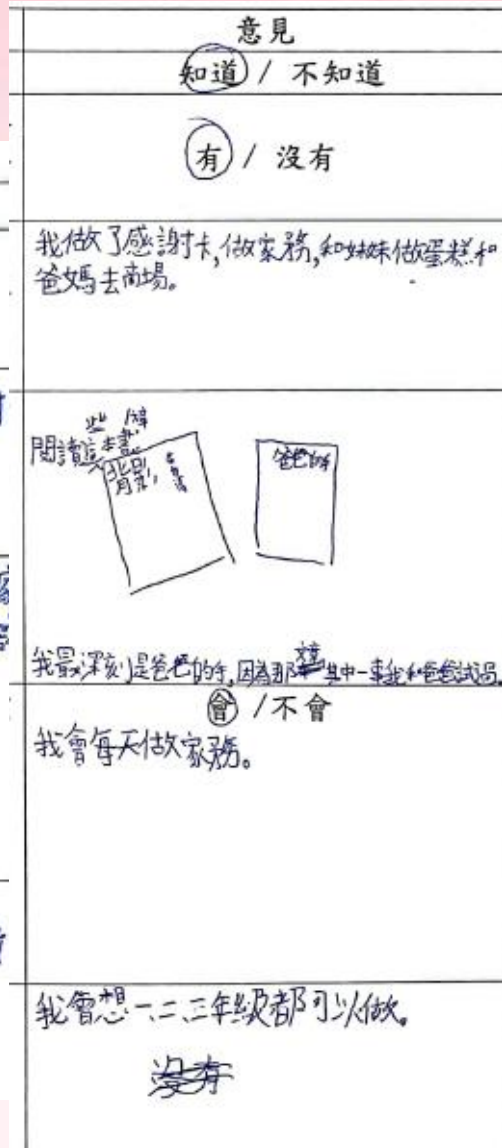 意見
知道 / 不知道
有 / 沒有
我做了感謝卡,做家務,和妹妹做蛋糕和
爸媽去商場。
些
閱讀這本書
背影,
爸爸的手
我最深刻是爸爸的手,因為那文章其中一事我和爸爸試過。
會 / 不會
我會每天做家務。
我會想一、二、三年級都可以做。
沒有